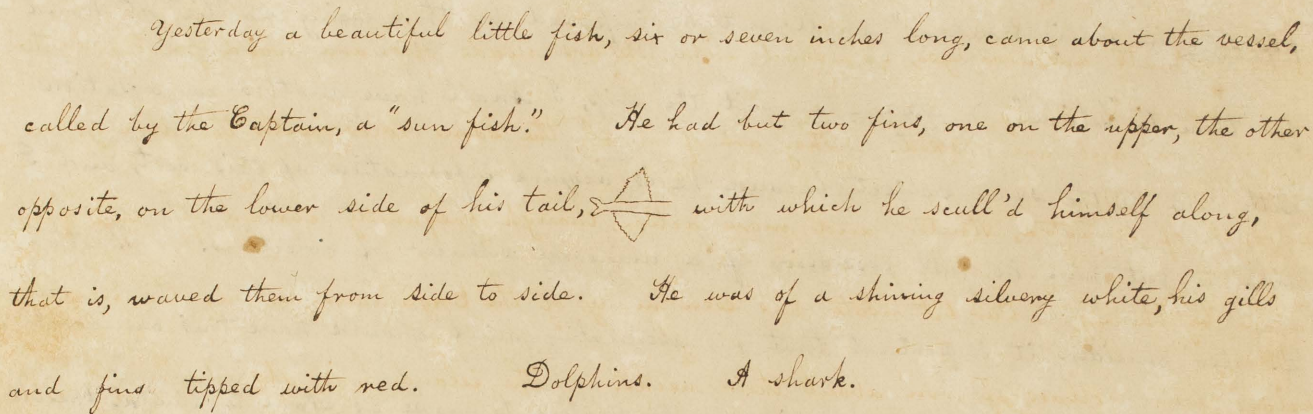 Yesterday a beautiful little fish, six or seven inches long, came about the vessel,
called by the Captain, a "sun fish." He had but two fins, one on the upper, the other
opposite, on the lower side of his tail, with which he scull'd himself along,
that is, waved them from side to side. He was of a shining silvery white, his gills
and fins tipped with red. Dolphins. A shark.